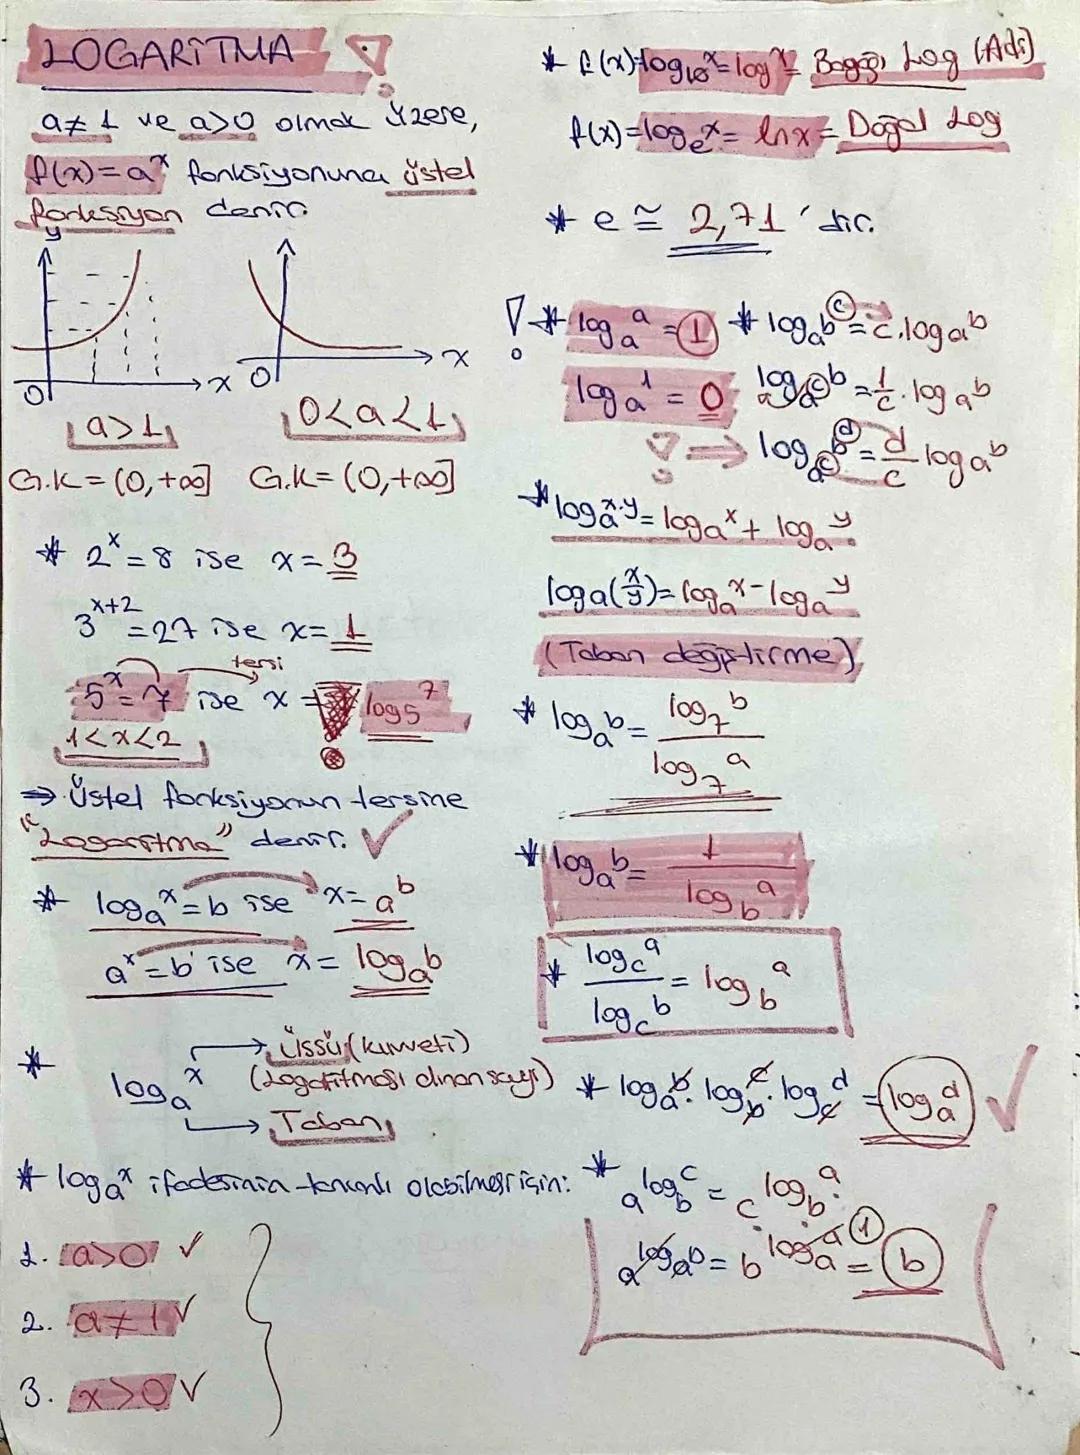 LOGARİTMA !
a≠1 ve a>0 olmak üzere,
f(x)=aˣ fonksiyonuna üstel
fonksiyon denir.
y
x x
0 0
a>1 0<a<1
G.K=(0,+∞] G.K=(0,+∞]
* 2ˣ=8 ise x=3
3ˣ⁺²=27 ise x=1
tersi
5ˣ=7 ise x = log₅7
1<x<2
⇒ Üstel fonksiyonun tersine
"Logaritma" denir. ✓
* logₐx=b ise x=aᵇ
aˣ=b ise x=logₐb
* logₐx
→ Üssü (kuvveti)
(Logaritması alınan sayı)
→ Taban
* logₐx ifadesinin tanımlı olabilmesi için:
1. a>0 ✓
2. a≠1 ✓
3. x>0 ✓
* f(x)=log₁₀x=logx= Log (Adi)
f(x)=logₑx=lnx= Doğal Log
* e ≅ 2,71'dir.
! * logₐa=1 * logₐb^c=c.logₐb
logₐ1=0 log_(a^c) b=1/c.logₐb
! ⇒ log_(a^c) b^d=d/c logₐb
* logₐx.y=logₐx+logₐy
logₐ(x/y)=logₐx-logₐy
(Taban değiştirme)
* logₐb=log₇b/log₇a
* logₐb=1/log_b a
* log_c a/log_c b=log_b a
* logₐb.log_b c.log_c d=logₐd ✓
* a^(log_b c)=c^(log_b a).
a^(logₐb)=b^(logₐa) 1=b